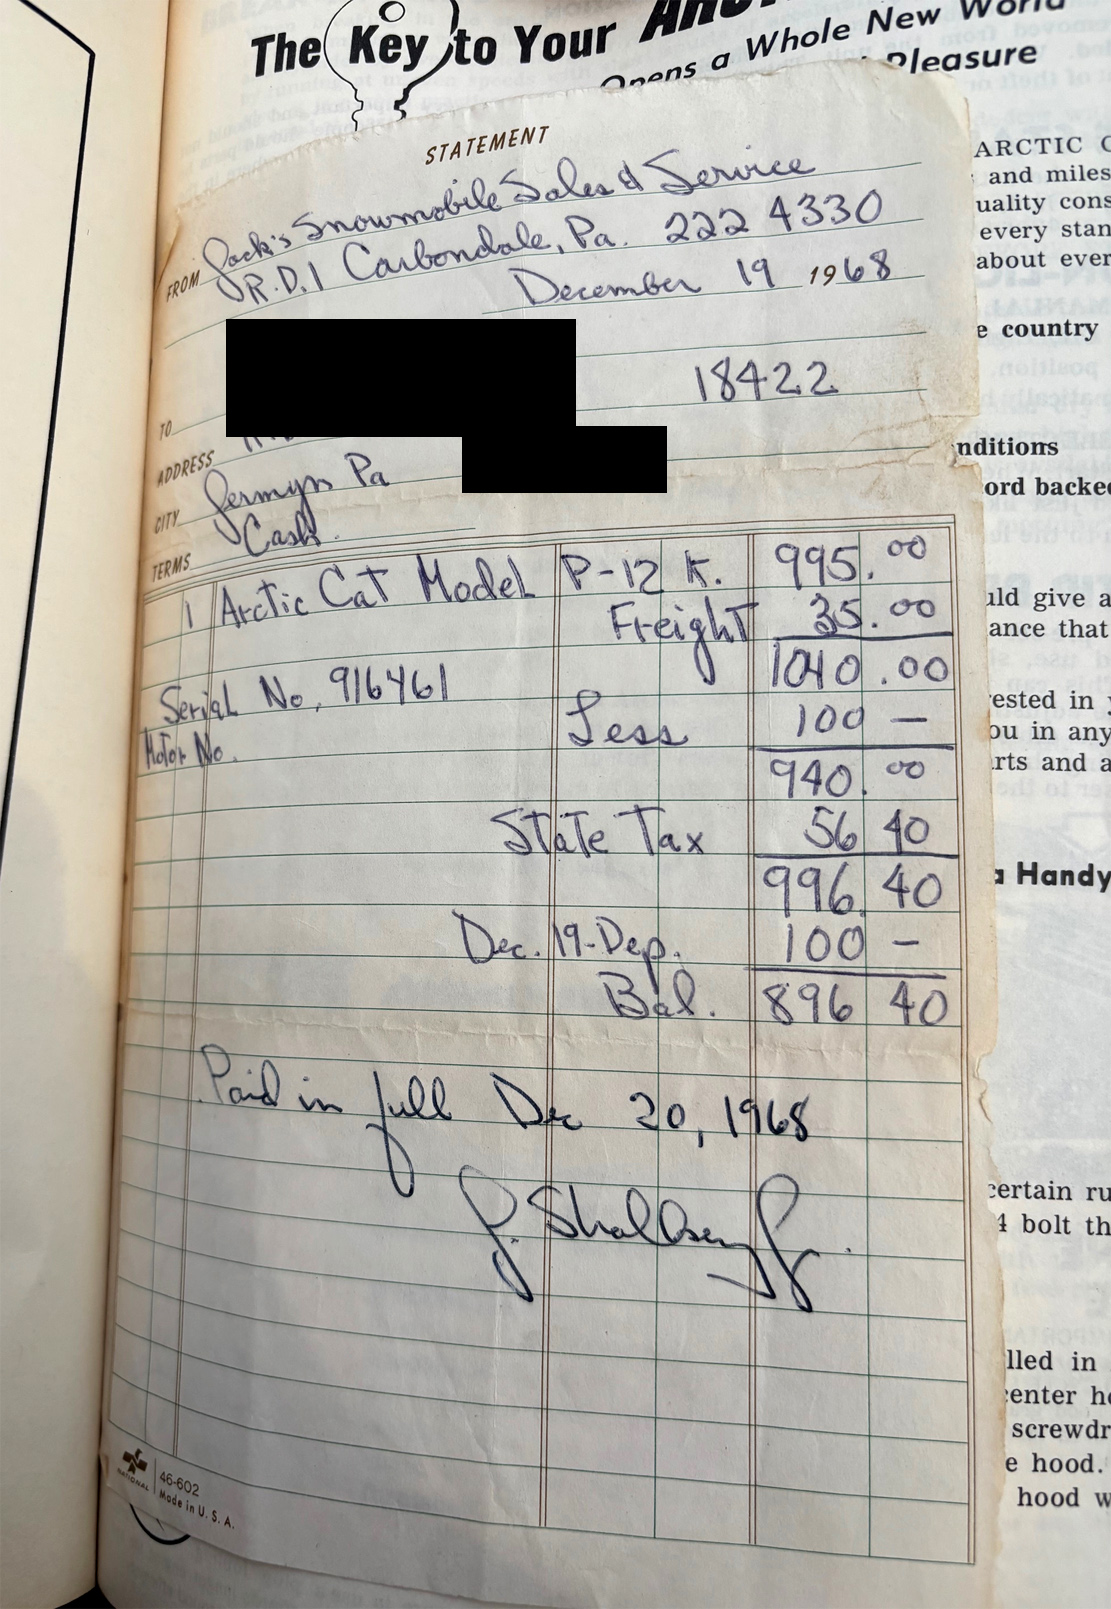 The Key to Your
Opens a Whole New World
Pleasure
STATEMENT
FROM Jack's Snowmobile Sales & Service
R.D.1 Carbondale, Pa. 222 4330
December 19 1968
TO 18422
ADDRESS
CITY Jermyn Pa
TERMS Cash.
1 Arctic Cat Model P-12 K. 995.00
Freight 35.00
1040.00
Serial No. 916461
Less 100 —
Motor No.
940.00
State Tax 56 40
996.40
Dec. 19-Dep. 100 —
Bal. 896 40
Paid in full Dec 20, 1968
NATIONAL
46-602
Made in U. S. A.
ARCTIC C
and miles
uality cons
every stan
about ever
e country
nditions
ord backed
uld give a
ance that
ested in y
ou in any
rts and a
a Handy
certain ru
4 bolt th
lled in
center ho
screwdr
e hood.
hood w